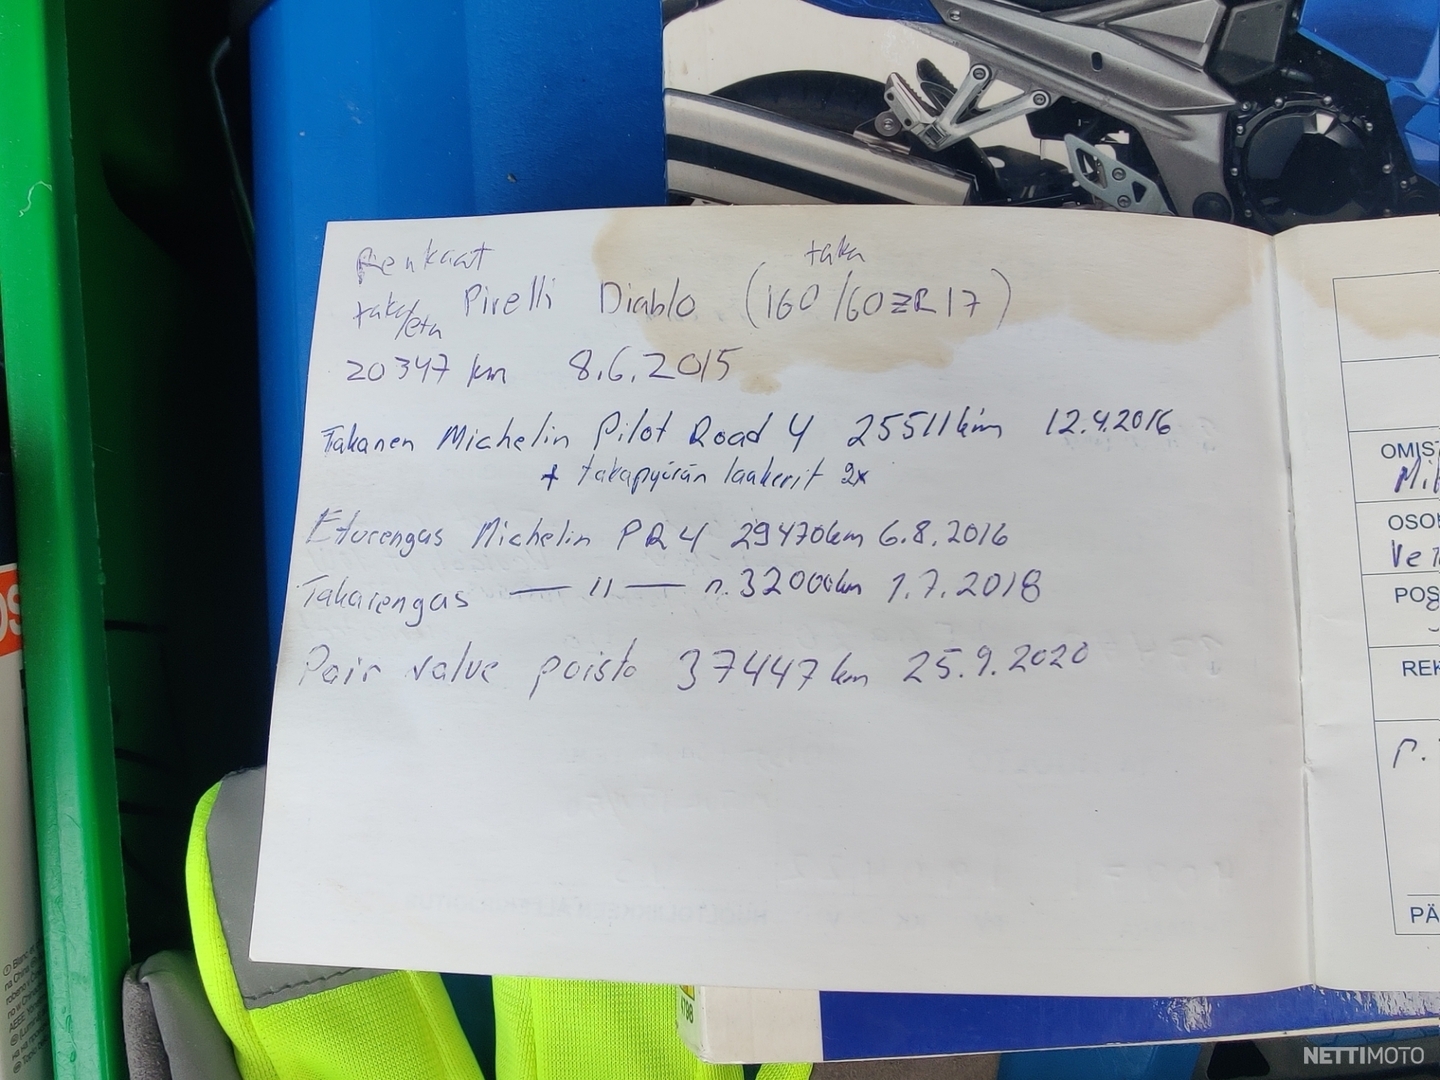 Renkaat
taka
taka/etu Pirelli Diablo (160/60ZR17)
20347 km 8.6.2015
Takanen Michelin Pilot Road 4 25511km 12.4.2016
+ takapyörän laakerit 2x
Eturengas Michelin PR4 29470km 6.8.2016
Takarengas — 11 — n.32000km 1.7.2018
Pair valve poisto 37447km 25.9.2020
OMIST
Mi
OSO
Ve
POS
REK
P.
PÄ
K7BB
NETTIMOTO